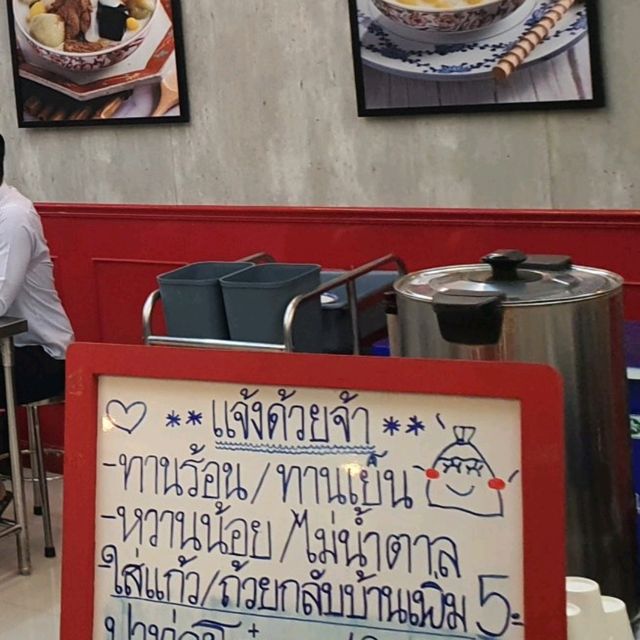 ** แจ้งด้วยจ้า **
-ทานร้อน/ทานเย็น
-หวานน้อย/ไม่น้ำตาล
ใส่แก้ว/ถ้วยกลับบ้านเพิ่ม 5.-